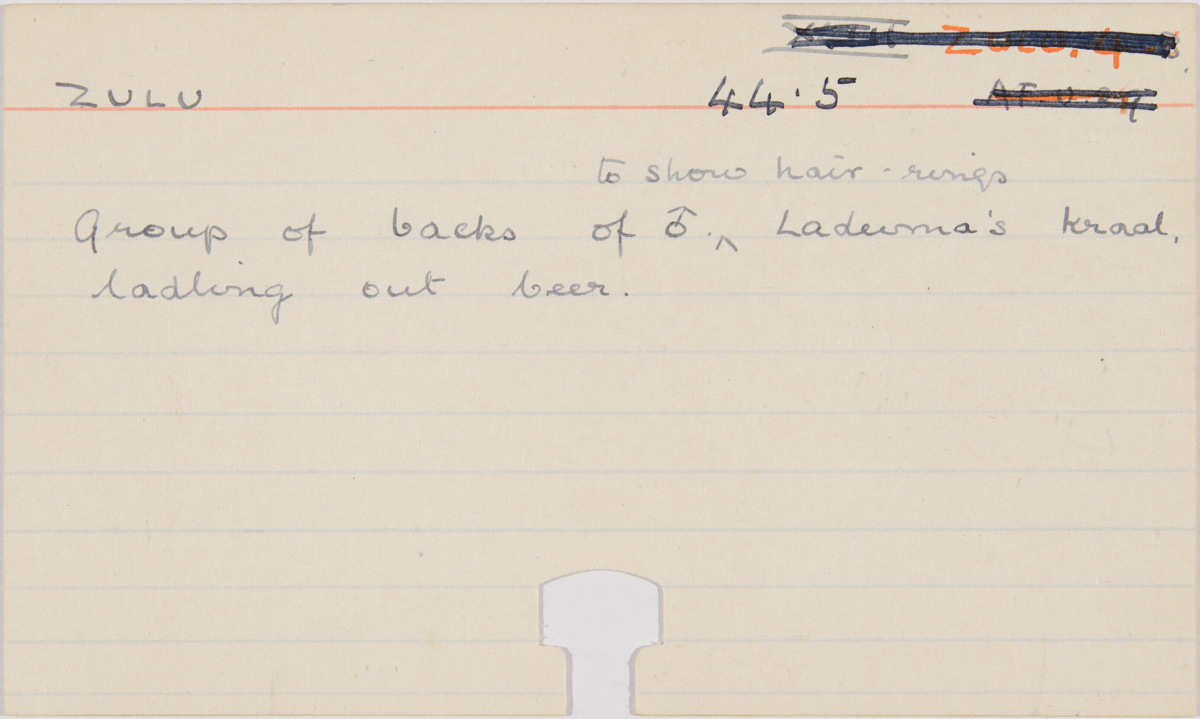 ZULU. 4
ZULU 44.5
to show hair-rings
Group of backs of ♂. ^ Laduma's kraal,
ladling out beer.